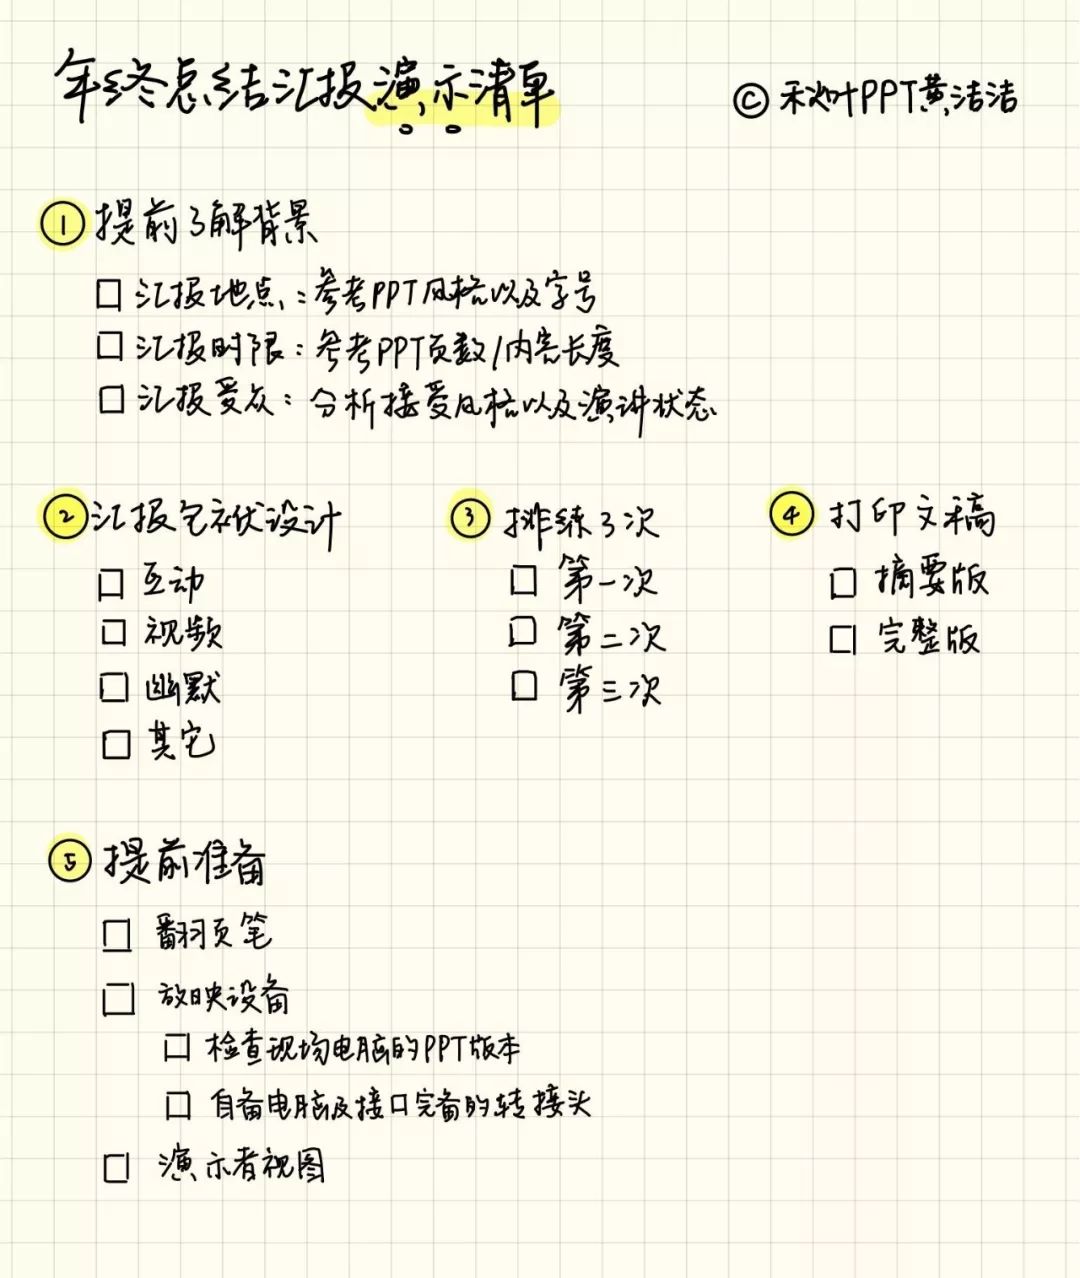 年终总结汇报演示清单
© 秋叶PPT黄洁洁
① 提前了解背景
□ 汇报地点：参考PPT风格以及字号
□ 汇报时限：参考PPT页数/内容长度
□ 汇报受众：分析接受风格以及演讲状态
② 汇报包袱设计
□ 互动
□ 视频
□ 幽默
□ 其它
③ 排练3次
□ 第一次
□ 第二次
□ 第三次
④ 打印文稿
□ 摘要版
□ 完整版
⑤ 提前准备
□ 翻页笔
□ 放映设备
□ 检查现场电脑的PPT版本
□ 自备电脑及接口完备的转接头
□ 演示者视图